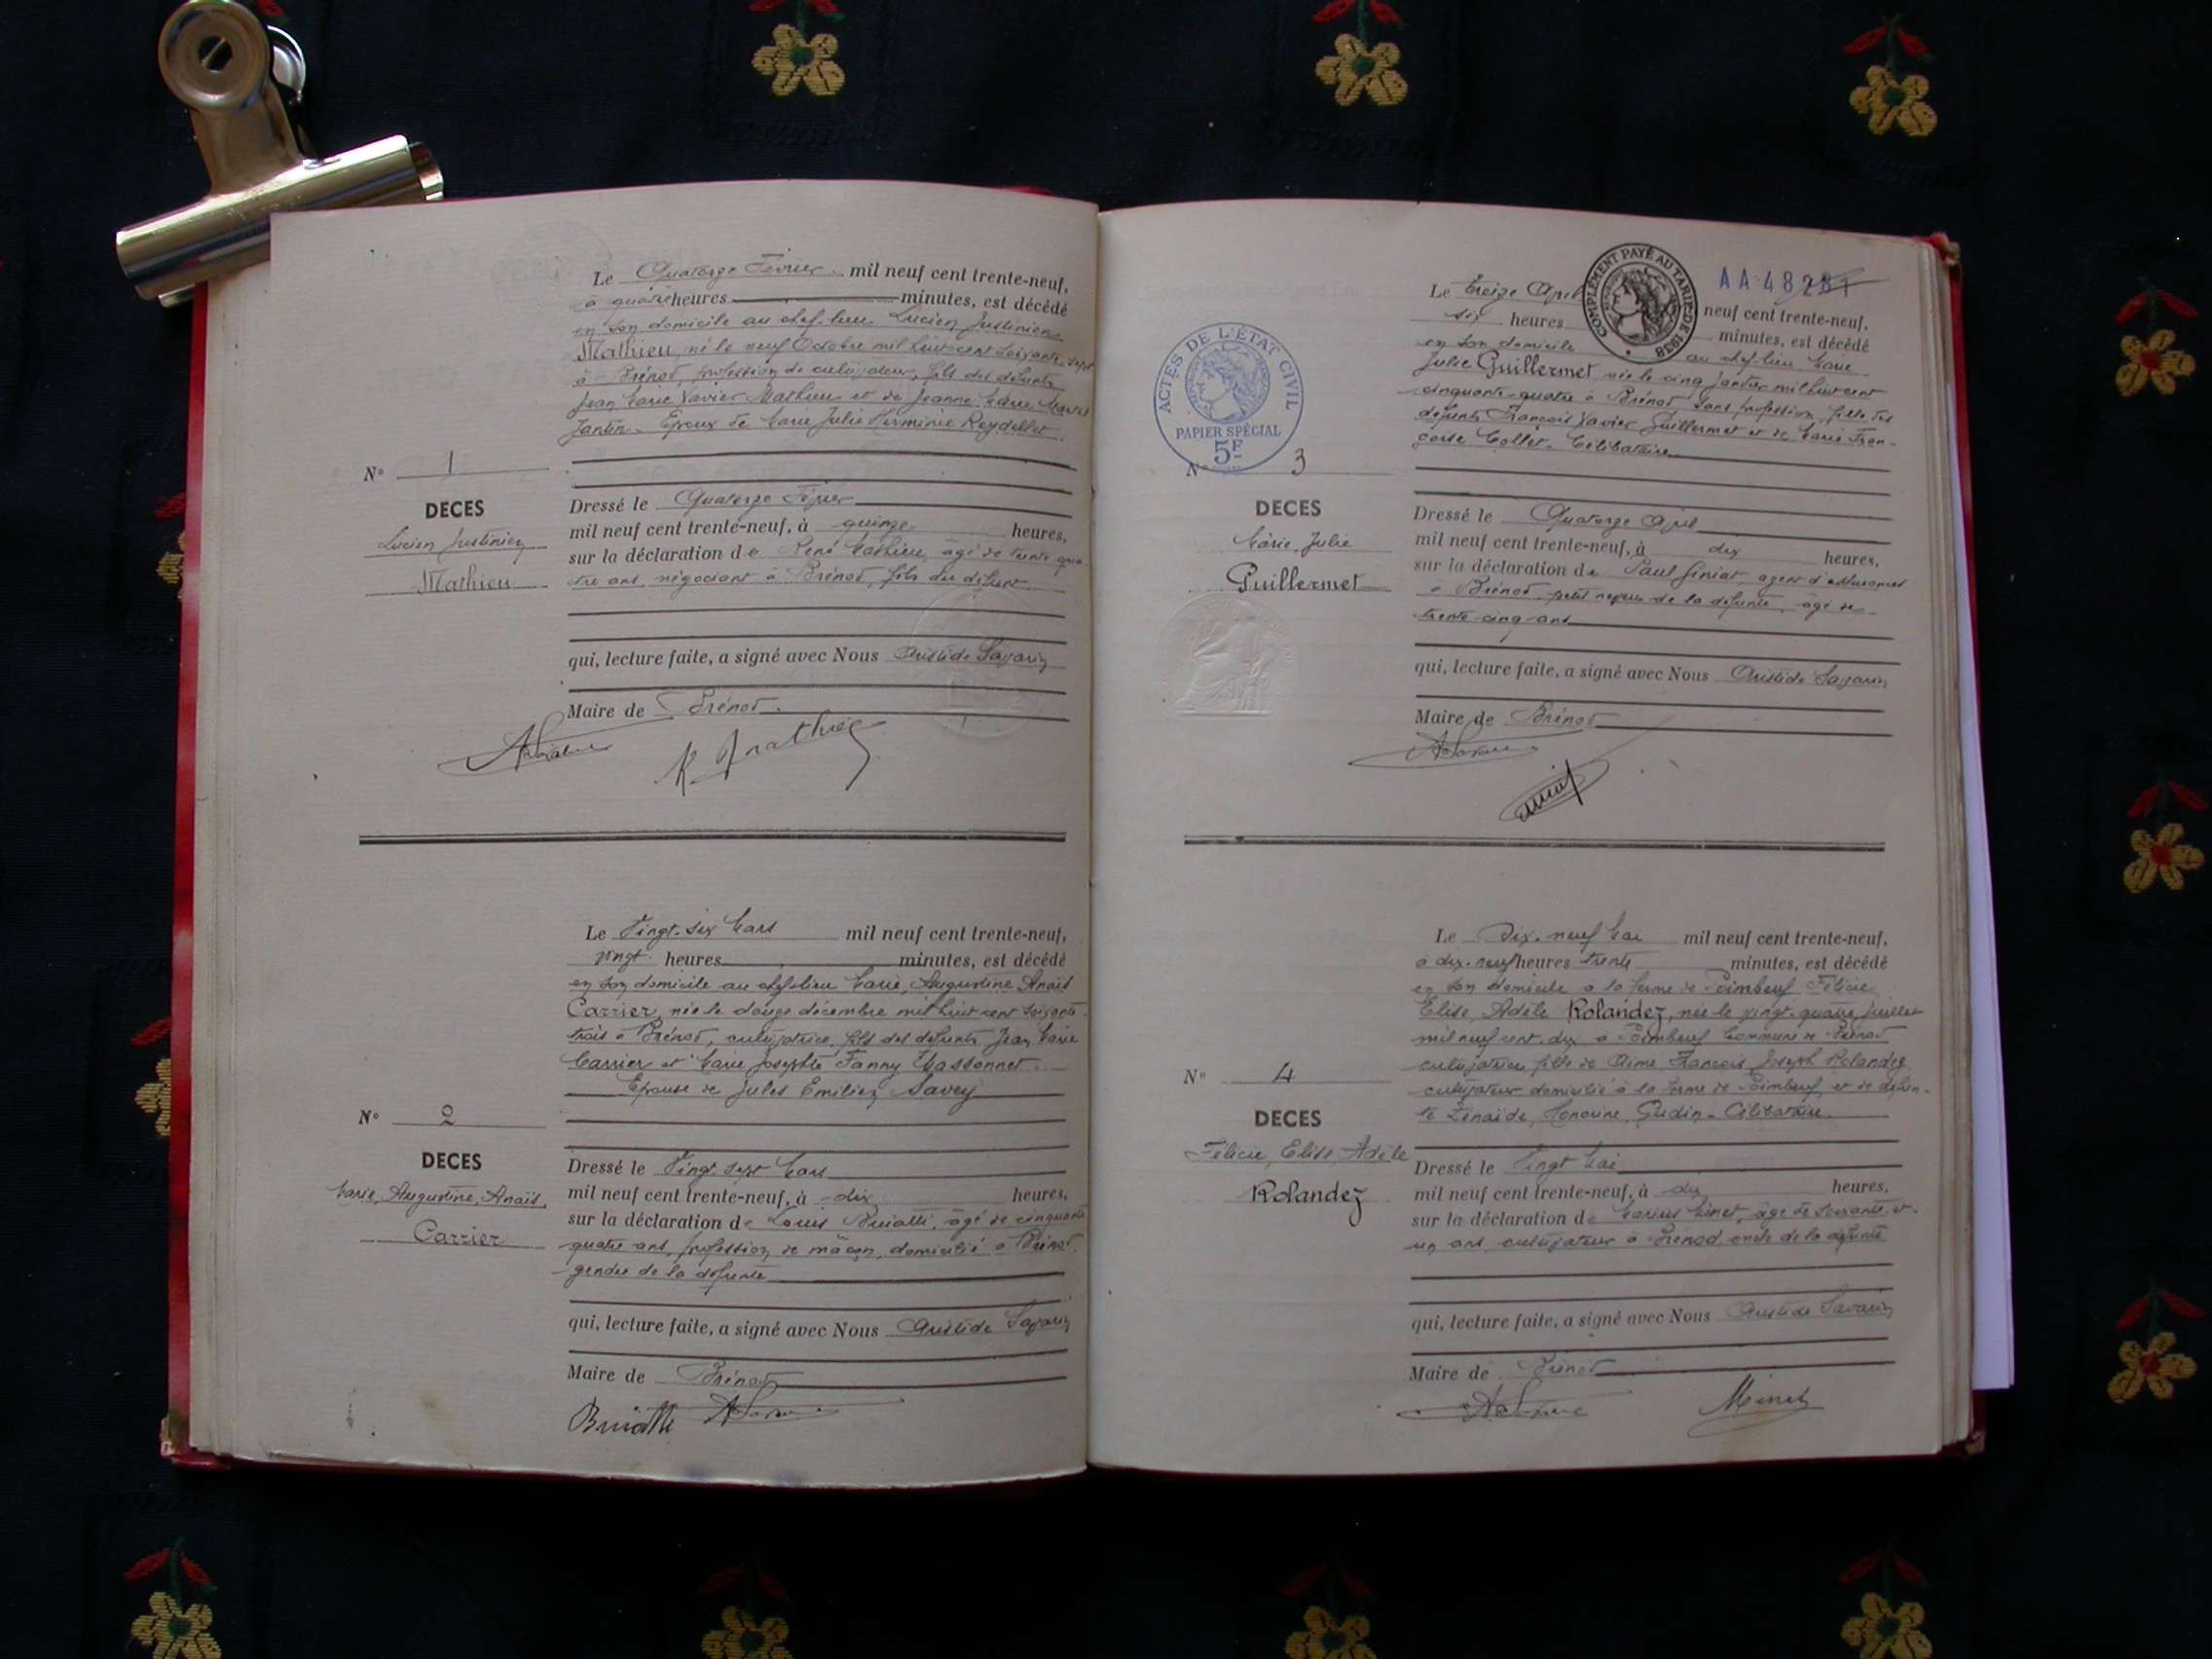 Le Quatorze Février mil neuf cent trente-neuf,
à quatre heures minutes, est décédé
en son domicile au chef-lieu Lucien Justinien
Mathieu, né le neuf Octobre mil huit cent soixante-sept
à Brénod, profession de cultivateur, fils des défunts
Jean Marie Xavier Mathieu et de Jeanne Marie
Jantin. Epoux de Marie Julie Herminie Reydellet
N° 1
DECES
Lucien Justinien
Mathieu
Dressé le Quatorze Février
mil neuf cent trente-neuf, à quinze heures,
sur la déclaration de René Mathieu, âgé de trente qua-
tre ans, négociant à Brénod, fils du défunt
qui, lecture faite, a signé avec Nous Aristide Savarin
Maire de Brénod.
R Mathieu
Le Vingt-six Mars mil neuf cent trente-neuf,
vingt heures minutes, est décédé
en son domicile au chef-lieu Marie, Augustine Anaïs
Carrier, née le douze décembre mil huit cent soixante-
trois à Brénod, cultivatrice, fille des défunts Jean Marie
Carrier et Marie Josephte Fanny Chassonnet
Epouse de Jules Emilien Savey
N° 2
DECES
Marie, Augustine, Anaïs,
Carrier
Dressé le Vingt-sept Mars
mil neuf cent trente-neuf, à dix heures,
sur la déclaration de Louis Buiatti, âgé de cinquante
quatre ans, profession de maçon, domicilié à Brénod,
gendre de la défunte
qui, lecture faite, a signé avec Nous Aristide Savarin
Maire de Brénod
Buiatti
COMPLÉMENT PAYÉ AU TARIF DE 1938
AA 48281
Le treize Avril neuf cent trente-neuf,
six heures minutes, est décédé
en son domicile au chef-lieu Marie
Julie Guillermet née le cinq Janvier mil huit cent
cinquante-quatre à Brénod sans profession, fille des
défunts François Xavier Guillermet et de Marie Fran-
çoise Collet. Célibataire
ACTES DE L'ÉTAT CIVIL
PAPIER SPÉCIAL
5F
N° 3
DECES
Marie, Julie
Guillermet
Dressé le Quatorze Avril
mil neuf cent trente-neuf, à dix heures,
sur la déclaration de Paul Giniat, agent d'assurances
à Brénod, petit neveu de la défunte, âgé de
trente-cinq ans
qui, lecture faite, a signé avec Nous Aristide Savarin
Maire de Brénod
Le Dix-neuf Mai mil neuf cent trente-neuf,
à dix-neuf heures trente minutes, est décédé
en son domicile à la ferme de Poimbeuf Félicie
Elise, Adèle Rolandez, née le vingt-quatre juillet
mil neuf cent dix à Poimbeuf Commune de Brénod
cultivatrice fille de Aimé François Joseph Rolandez
cultivateur domicilié à la ferme de Poimbeuf, et de défun-
te Zénaïde, Honorine, Gudin. Célibataire
N° 4
DECES
Félicie, Elise, Adèle
Rolandez
Dressé le Vingt Mai
mil neuf cent trente-neuf, à dix heures,
sur la déclaration de Marius Minet, âgé de soixante-et-
un ans, cultivateur à Brénod, oncle de la défunte
qui, lecture faite, a signé avec Nous Aristide Savarin
Maire de Brénod
Minet